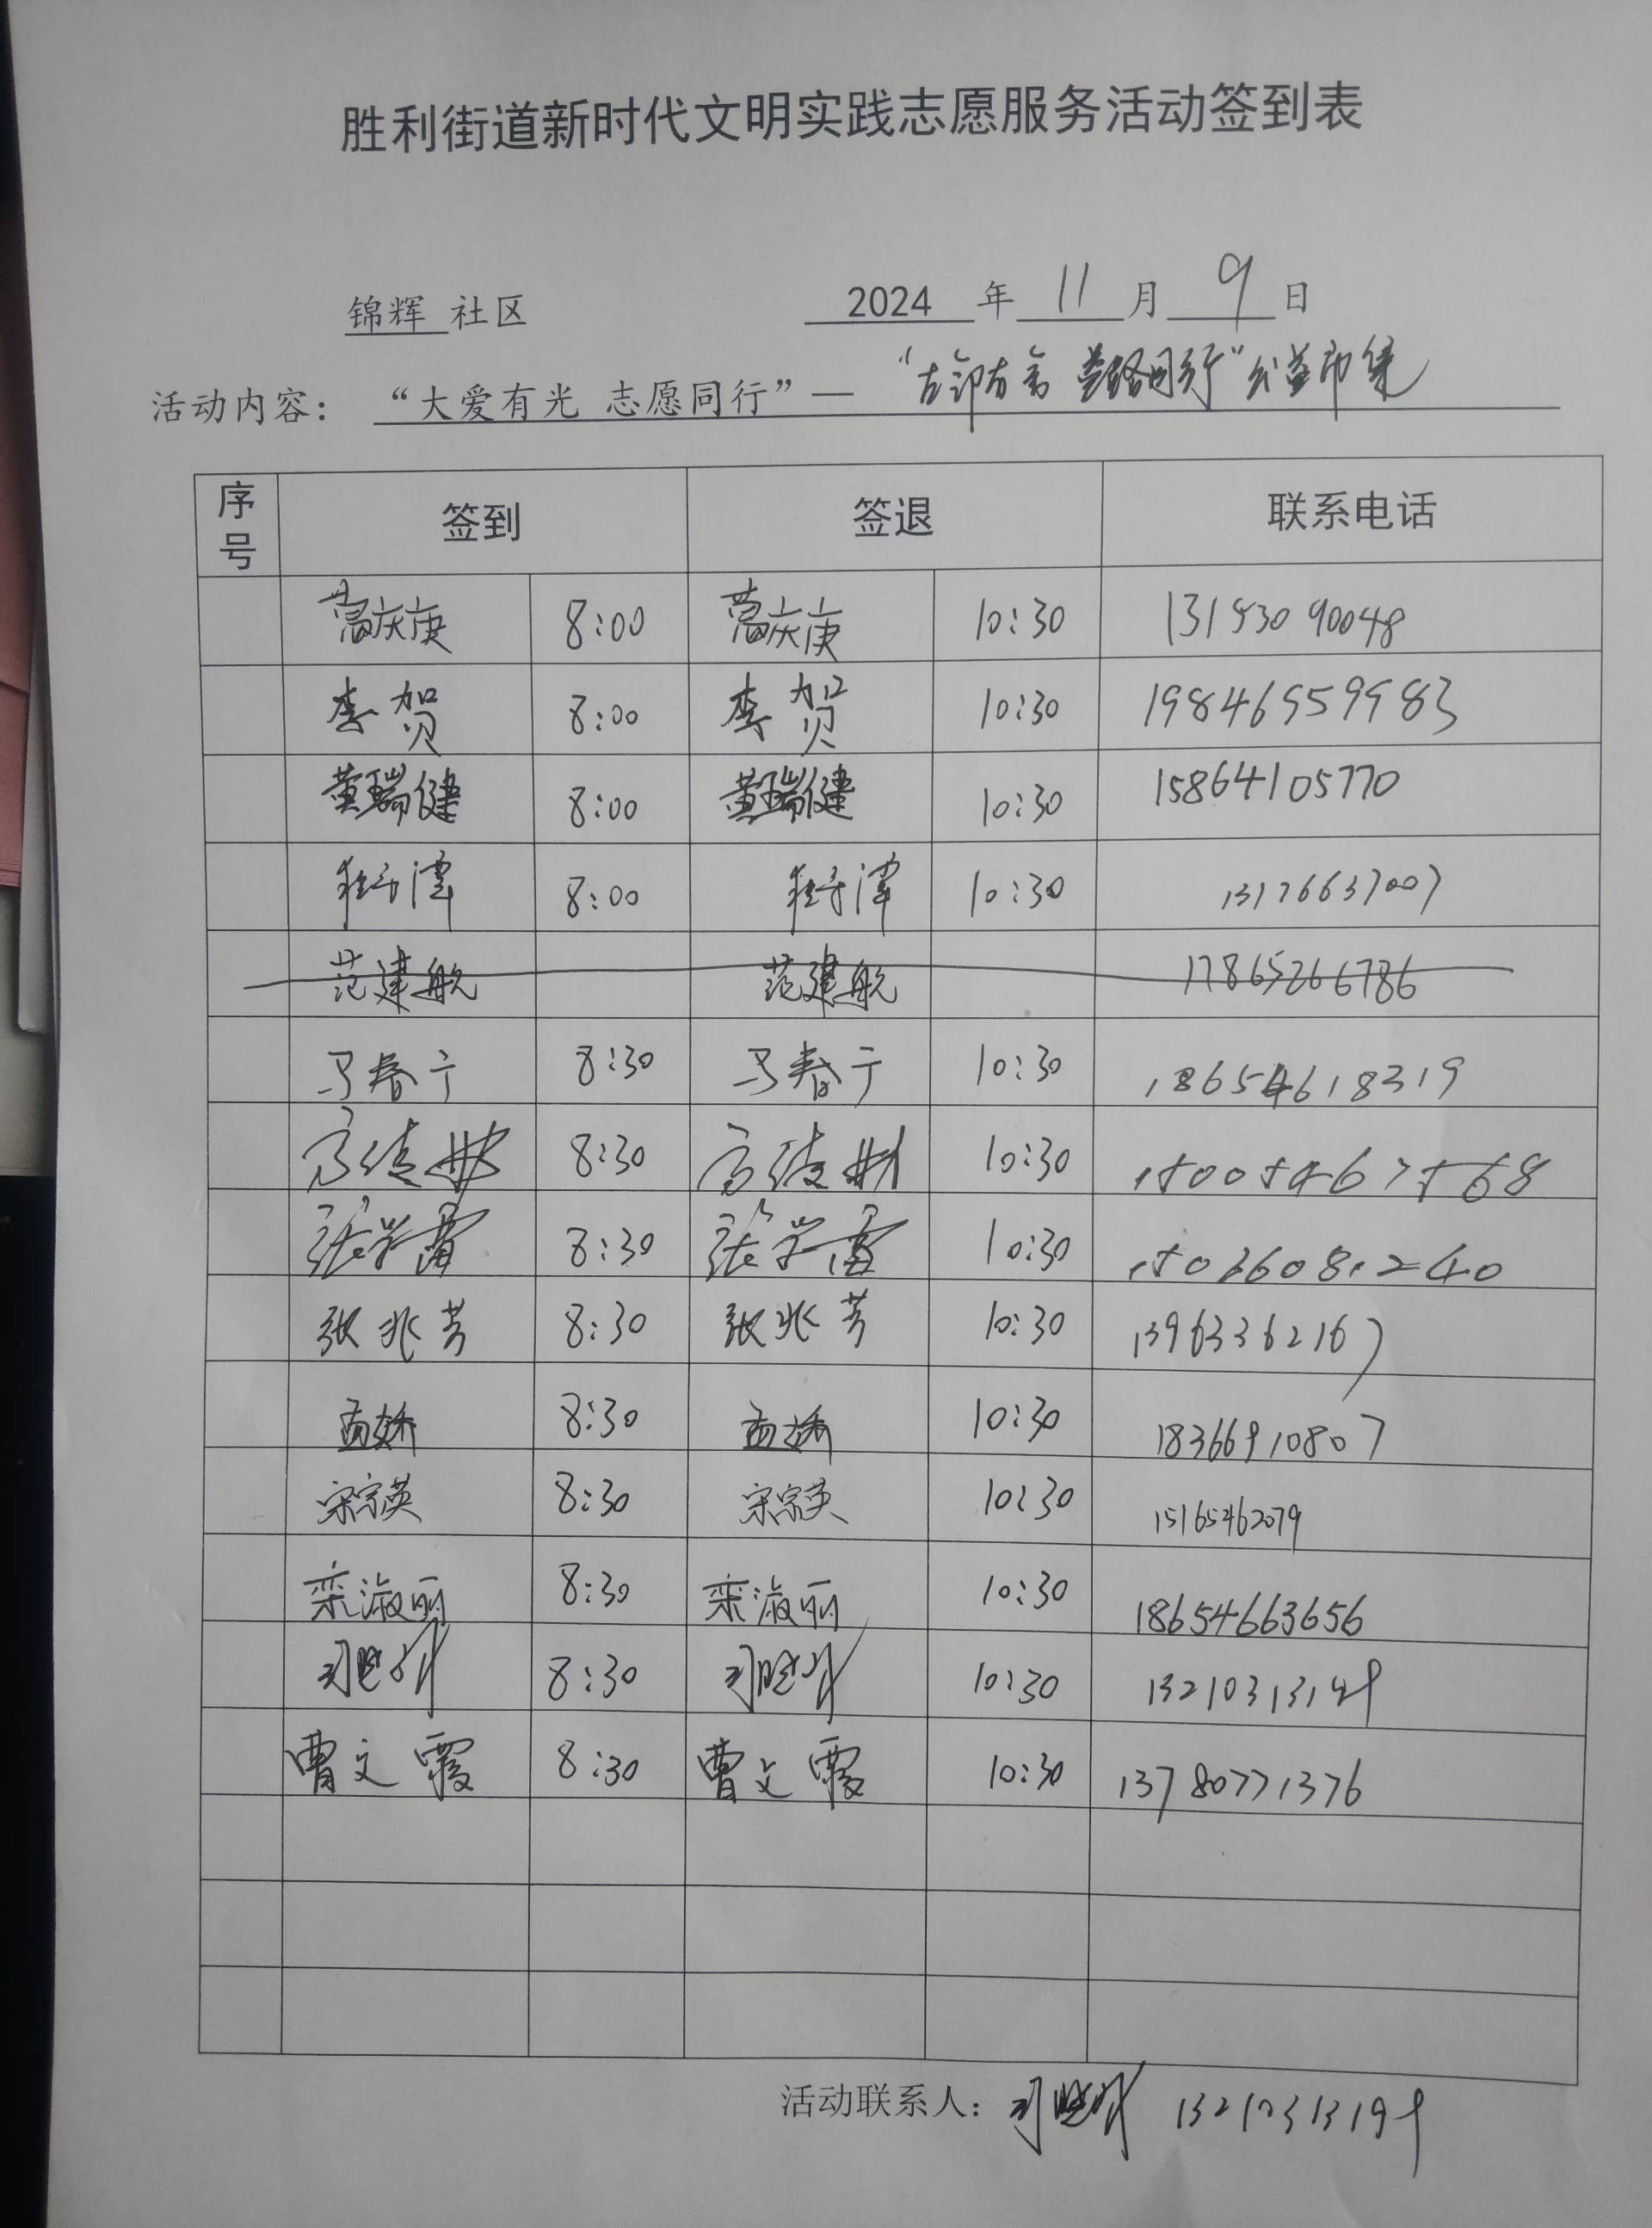 胜利街道新时代文明实践志愿服务活动签到表
锦辉 社区 2024 年 11 月 9 日
活动内容： “大爱有光 志愿同行”— 公益市集
序号 签到 签退 联系电话
8:00 10:30 13153090048
李贺 8:00 李贺 10:30 19846959983
黄瑞健 8:00 黄瑞健 10:30 15864105770
8:00 10:30 13176637007
范建航 范建航 17865266786
马春宁 8:30 马春宁 10:30 18654618319
8:30 10:30 15005467568
张学雷 8:30 张学雷 10:30 15026081240
张兆芳 8:30 张兆芳 10:30 13963362167
8:30 10:30 18366910807
宋宗英 8:30 宋宗英 10:30 15165462079
栾淑丽 8:30 栾淑丽 10:30 18654663656
8:30 10:30 13210313199
曹文霞 8:30 曹文霞 10:30 13780771376
活动联系人： 13210313199